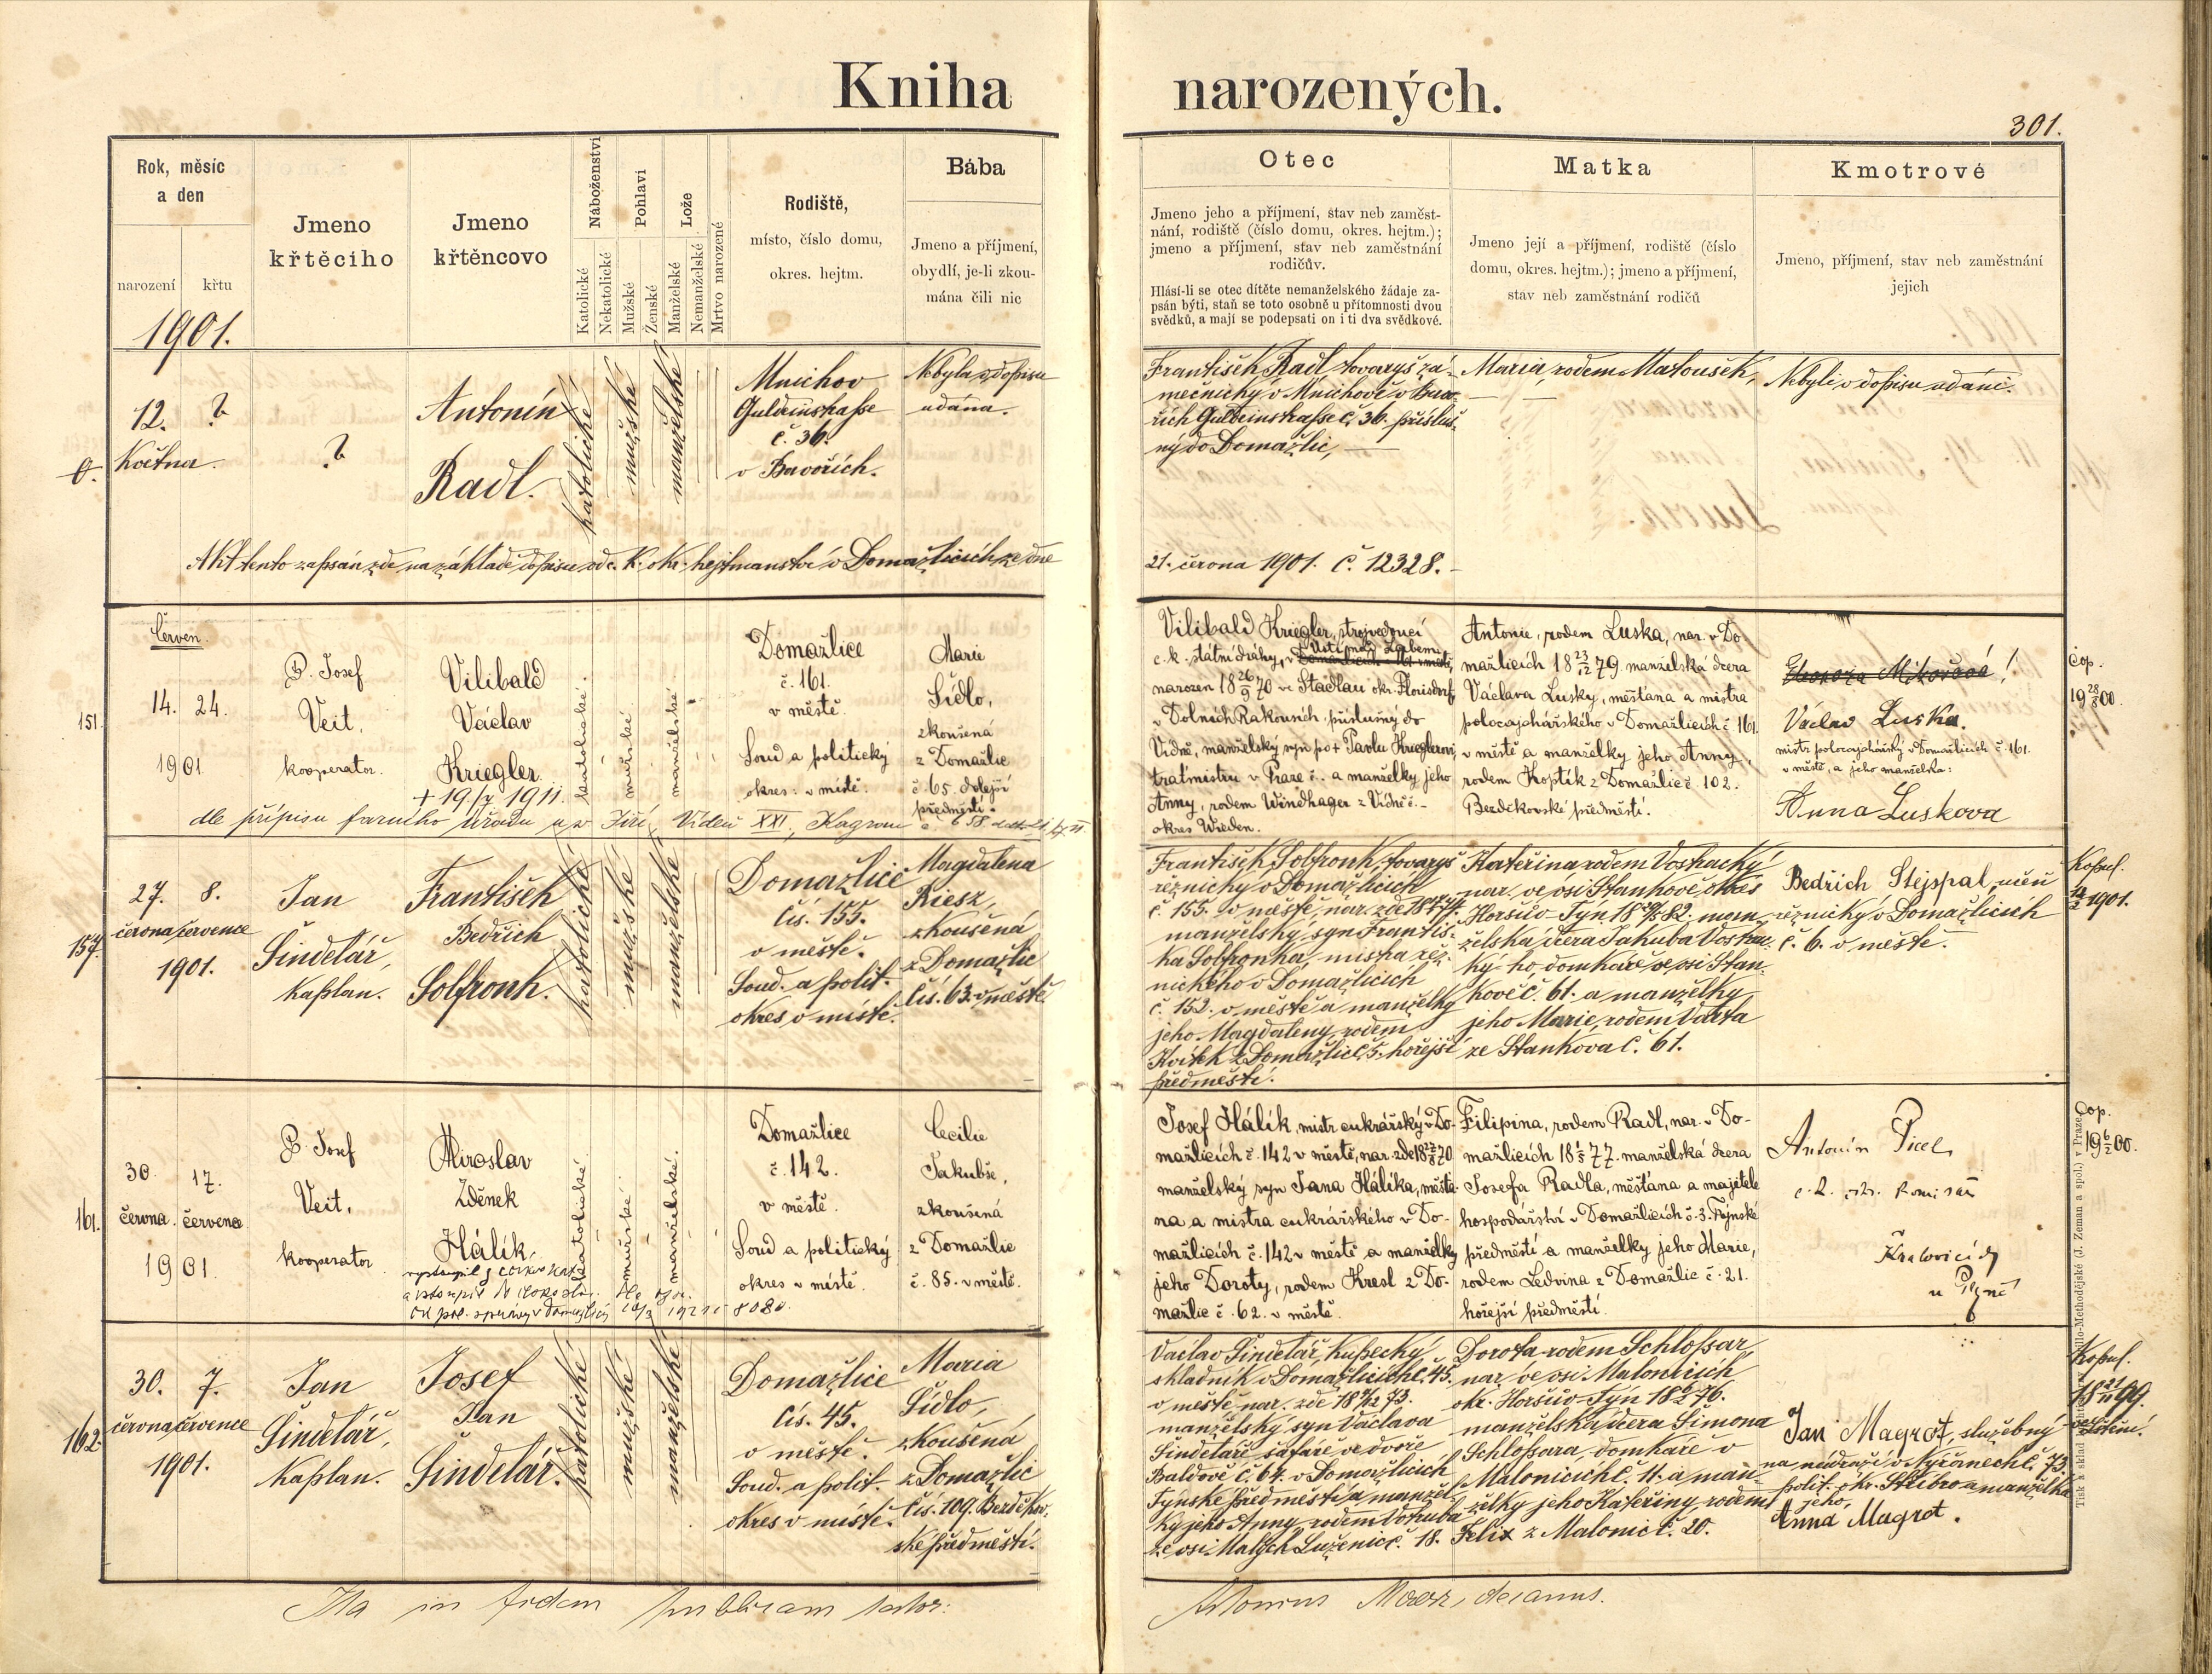 Kniha narozených.
301.
Rok, měsíc
a den
narození
křtu
1901.
Jmeno
křtěcího
Jmeno
křtěncovo
Náboženství
Katolické
Nekatolické
Pohlaví
Mužské
Ženské
Lože
Manželské
Nemanželské
Mrtvo narozené
Rodiště,
místo, číslo domu,
okres. hejtm.
Bába
Jmeno a příjmení,
obydlí, je-li zkou-
mána čili nic
Otec
Jmeno jeho a příjmení, stav neb zaměst-
nání, rodiště (číslo domu, okres. hejtm.);
jmeno a příjmení, stav neb zaměstnání
rodičův.
Hlásí-li se otec dítěte nemanželského žádaje za-
psán býti, staň se toto osobně u přítomnosti dvou
svědků, a mají se podepsati on i ti dva svědkové.
Matka
Jmeno její a příjmení, rodiště (číslo
domu, okres. hejtm.); jmeno a příjmení,
stav neb zaměstnání rodičů
Kmotrové
Jmeno, příjmení, stav neb zaměstnání
jejich
0.
12. ?
Května.
?
Antonín
Radl.
katolické
mužské
manželské
Mnichov
č. 36.
v Bavořích.
Nebyla v dopisu
udána.
František Radl tovaryš zá-
mečnický v Mnichově v Bavo-
řích č. 36. přísluš-
ný do Domažlic,
Maria, rodem Matoušek,
Nebyli v dopisu udáni.
Akt tento zapsán zde na základě dopisu od c. k. okr. hejtmanství v Domažlicích ze dne
21. června 1901. Č. 12328.
151.
Červen.
14. 24.
1901
P. Josef
Veit,
kooperator.
Vilibald
Václav
Kriegler
+ 19/7 1911.
katolické.
mužské
manželské
Domažlice
č. 161.
v městě.
Soud a politický
okres: v místě.
Marie
Sídlo,
zkoušená
z Domažlic
č 65. dolejší
předměstí.
dle přípisu farního úřadu u sv Jiří, Vídeň XXI, Kagran
Vilibald Kriegler, strojvedoucí
Ústí nad Labem
c. k. státní dráhy, v
narozen 18 26/9 70 ve Stadlau okr. Florisdorf
v Dolních Rakousích, příslušný do
Vídně, manželský syn po + Pavlu Krieglerovi,
traťmistru v Praze č.- a manželky jeho
Anny, rodem Windhager z Vídně č.-
okres Wieden.
Antonie, rodem Luska, nar. v Do
mažlicích 18 23/12 79 manželská dcera
Václava Lusky, měšťana a mistra
polocajchářského v Domažlicích č 161.
v městě a manželky jeho Anny,
rodem Koptík z Domažlic č. 102.
Bezděkovské předměstí.
Václav Luska.
mistr polocajchářský v Domažlicích č. 161.
v městě, a jeho manželka:
Anna Luskova
Čop.
19 28/8 00.
157.
27. 8.
června července
1901.
Jan
Šindelář,
kaplan.
František
Bedřich
Solfronk.
katolické
mužské
manželské
Domažlice
čís. 155.
v městě.
Soud. a polit.
okres v místě.
Magdalena
Riesz,
zkoušená
z Domažlic
čís. 63. v městě
František Solfronk, tovaryš
řeznický v Domažlicích
č. 155. v městě, nar. zde
manželský syn Františ-
ka Solfronka, mistra řez-
nického v Domažlicích
č. 152. v městě a manželky
jeho Magdaleny, rodem
z Domažlic č. 5. hořejší
předměstí.
Kateřina rodem Vostracký
nar. ve vsi Staňkově okres
Horšův-Týn man-
želská dcera Jakuba Vostrac-
ký-ho, domkáře ve vsi Staň-
kově č. 61. a manželky
jeho Marie, rodem Vařta
ze Staňkova č. 61.
Bedřich Slejspal, učeň
řeznický v Domažlicích
č. 6. v městě.
Kopul.
1901.
161.
30. 17.
června. července
1901
P. Josef
Veit,
kooperator
Miroslav
Zdeněk
Hálík,
katolické
mužské
manželské.
Domažlice
č. 142.
v městě.
Soud a politický
okres v místě.
Cecilie
Jakubše,
zkoušená
z Domažlic
č. 85. v městě.
vystoupil z církve
8080.
Josef Hálík, mistr cukrářský v Do-
mažlicích č. 142 v městě, nar. zde 18 27/8 70
manželský syn Jana Hálíka, měšťa-
na a mistra cukrářského v Do-
mažlicích č. 142 v městě a manželky
jeho Doroty, rodem Kresl z Do-
mažlic č. 62. v městě.
Filipina, rodem Radl, nar. v Do-
mažlicích 18 1/5 77. manželská dcera
Josefa Radla, měšťana a majitele
hospodářství v Domažlicích č. 3. Týnské
předměstí a manželky jeho Marie,
rodem Ledvina z Domažlic č. 21.
hořejší předměstí.
Antonín Picel,
Kralovicích
u Plzně
Čop.
19 6/2 00.
162.
30. 7.
června července
1901.
Jan
Šindelář,
kaplan.
Josef
Jan
Šindelář.
katolické
mužské
manželské
Domažlice
čís. 45.
v městě.
Soud. a polit.
okres v místě.
Maria
Sídlo,
zkoušená
z Domažlic
čís. 109. Bezděkov-
ské předměstí.
Václav Šindelář, kupecký
skladník v Domažlicích č. 45.
v městě nar. zde
manželský syn Václava
Šindeláře, šafáře ve dvoře
Baldově č. 64. v Domažlicích
Týnské předměstí a manžel-
ky jeho Anny, rodem Votruba
ze vsi Malých Luženic č. 18.
Dorota rodem Schlossar,
nar. ve vsi Malonicích
okr. Horšův-Týn
manželská dcera Šimona
Schlossara, domkáře v
Malonicích č. 11. a man-
želky jeho Kateřiny, rodem
Felix z Malonic č. 20.
Jan Magrot, služebný
na nádraží v Nýřanech č. 73.
polit. okr. Stříbro a manželka
jeho,
Anna Magrot.
Kopul.
18 21/11 99.
Ita in fidem publicam testor:
Antonius decanus.